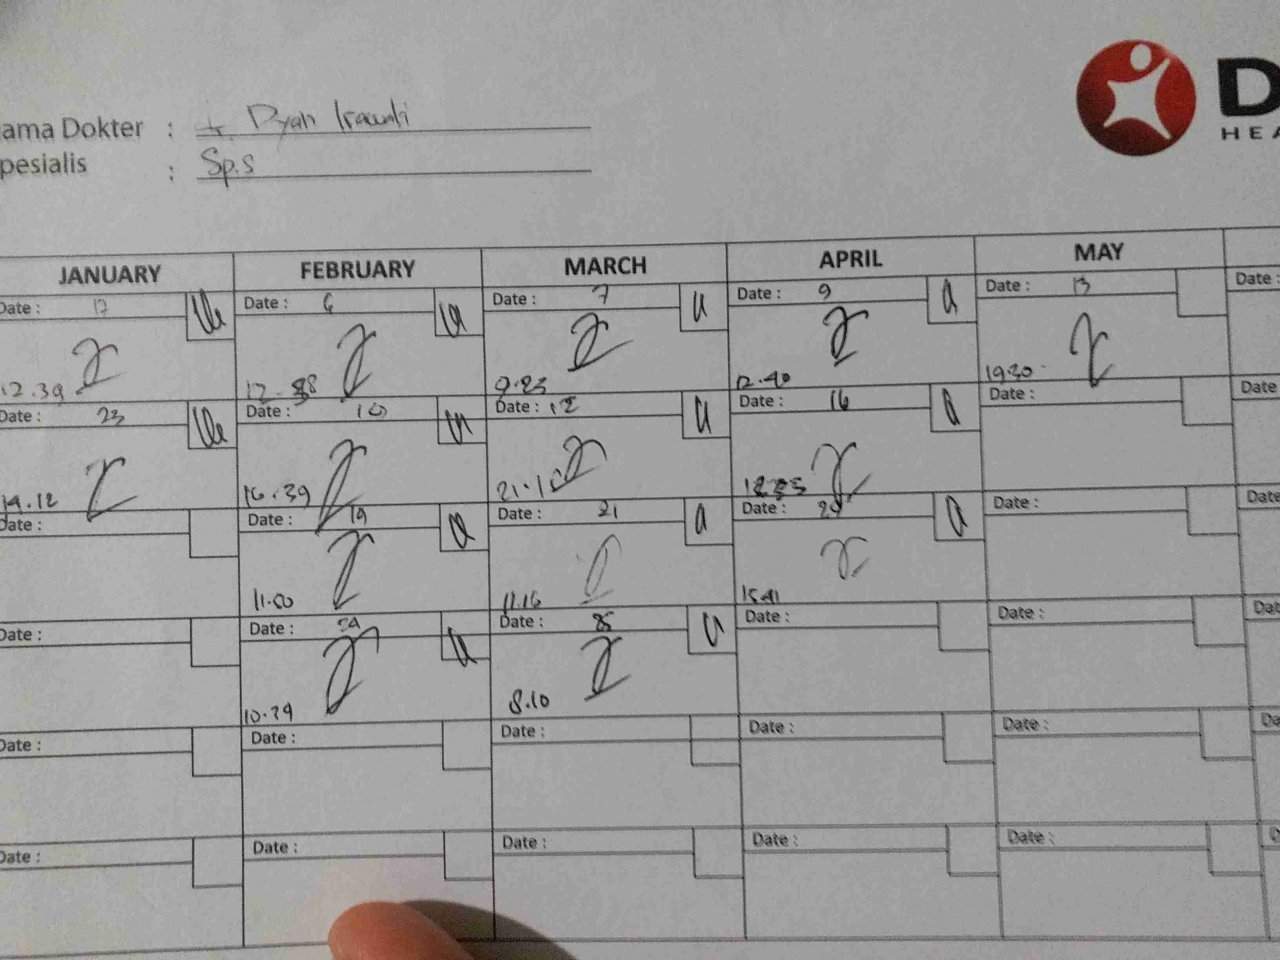 ama Dokter : dr. Dyah Irawati
pesialis : Sp.S
D
HEA
JANUARY FEBRUARY MARCH APRIL MAY
Date : 17 Date : 6 Date : 7 Date : 9 Date : 13 Date :
12.39 12. 9.23 12.40 19.20
Date : 23 Date : 10 Date : 12 Date : 16 Date : Date
19.12 16.39 21.1
Date : Date : 19 Date : 21 Date : 29 Date : Date
11.50 11.16 15.41
Date : Date : Date : Date : Date : Date
10.29 8.10
Date : Date : Date : Date : Date : Da
Date : Date : Date : Date : Date : D